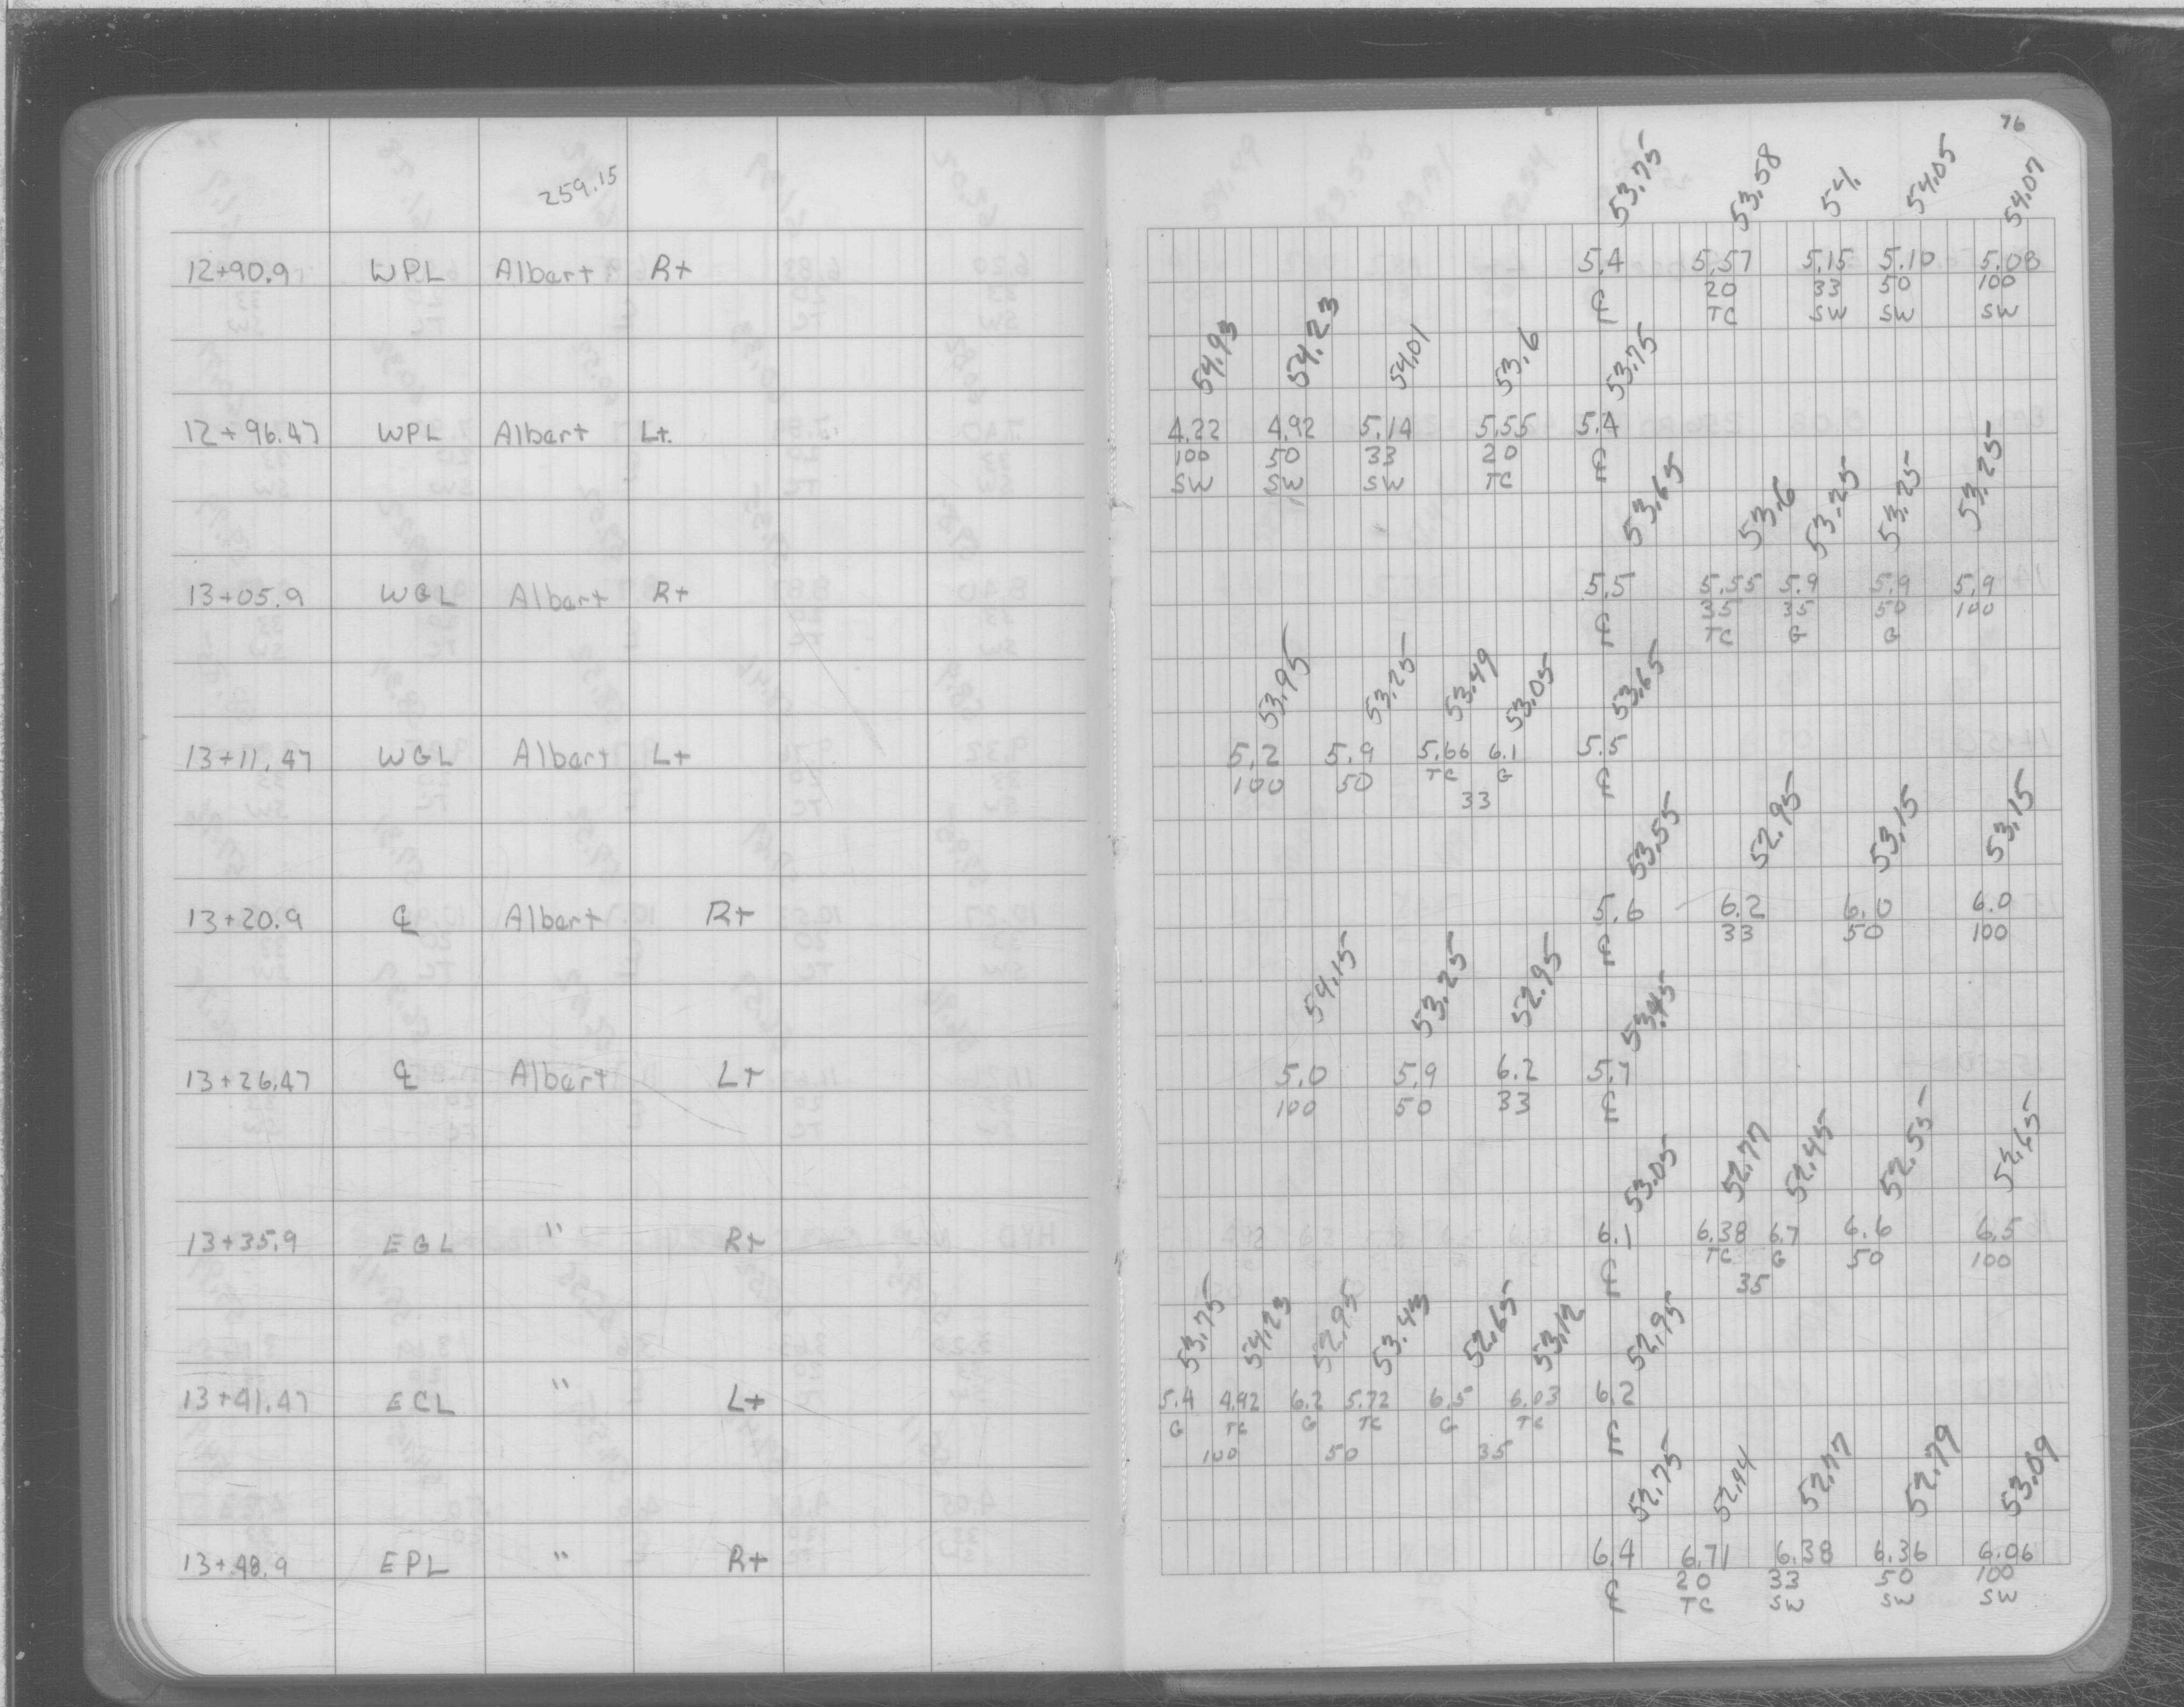 76
259.15
53.75 53.58 54. 54.05 54.07
12+90.9 WPL Albert Rt 5.4 5.57 5.15 5.10 5.08
20 33 50 100
℄ TC SW SW SW
54.93 54.23 54.01 53.6 53.75
12+96.47 WPL Albert Lt. 4.22 4.92 5.14 5.55 5.4
100 50 33 20 ℄
SW SW SW TC
53.65 53.6 53.25 53.25 53.25
13+05.9 WGL Albert Rt 5.5 5.55 5.9 5.9 5.9
35 35 50 100
℄ TC G G
53.95 53.25 53.49 53.05 53.65
13+11.47 WGL Albert Lt 5.2 5.9 5.66 6.1 5.5
100 50 TC G ℄
33
53.55 52.95 53.15 53.15
13+20.9 ℄ Albert Rt 5.6 6.2 6.0 6.0
℄ 33 50 100
54.15 53.25 52.95 53.45
13+26.47 ℄ Albert Lt 5.0 5.9 6.2 5.7
100 50 33 ℄
53.05 52.77 52.45 52.55 52.65
13+35.9 EGL " Rt 6.1 6.38 6.7 6.6 6.5
TC G 50 100
℄ 35
53.75 54.23 52.95 53.43 52.65 53.12 52.95
13+41.47 ECL " Lt 5.4 4.92 6.2 5.72 6.5 6.03 6.2
G TC G TC G TC ℄
100 50 35
52.75 52.77 52.79 53.09
13+48.9 EPL " Rt 6.4 6.71 6.38 6.36 6.06
20 33 50 100
℄ TC SW SW SW